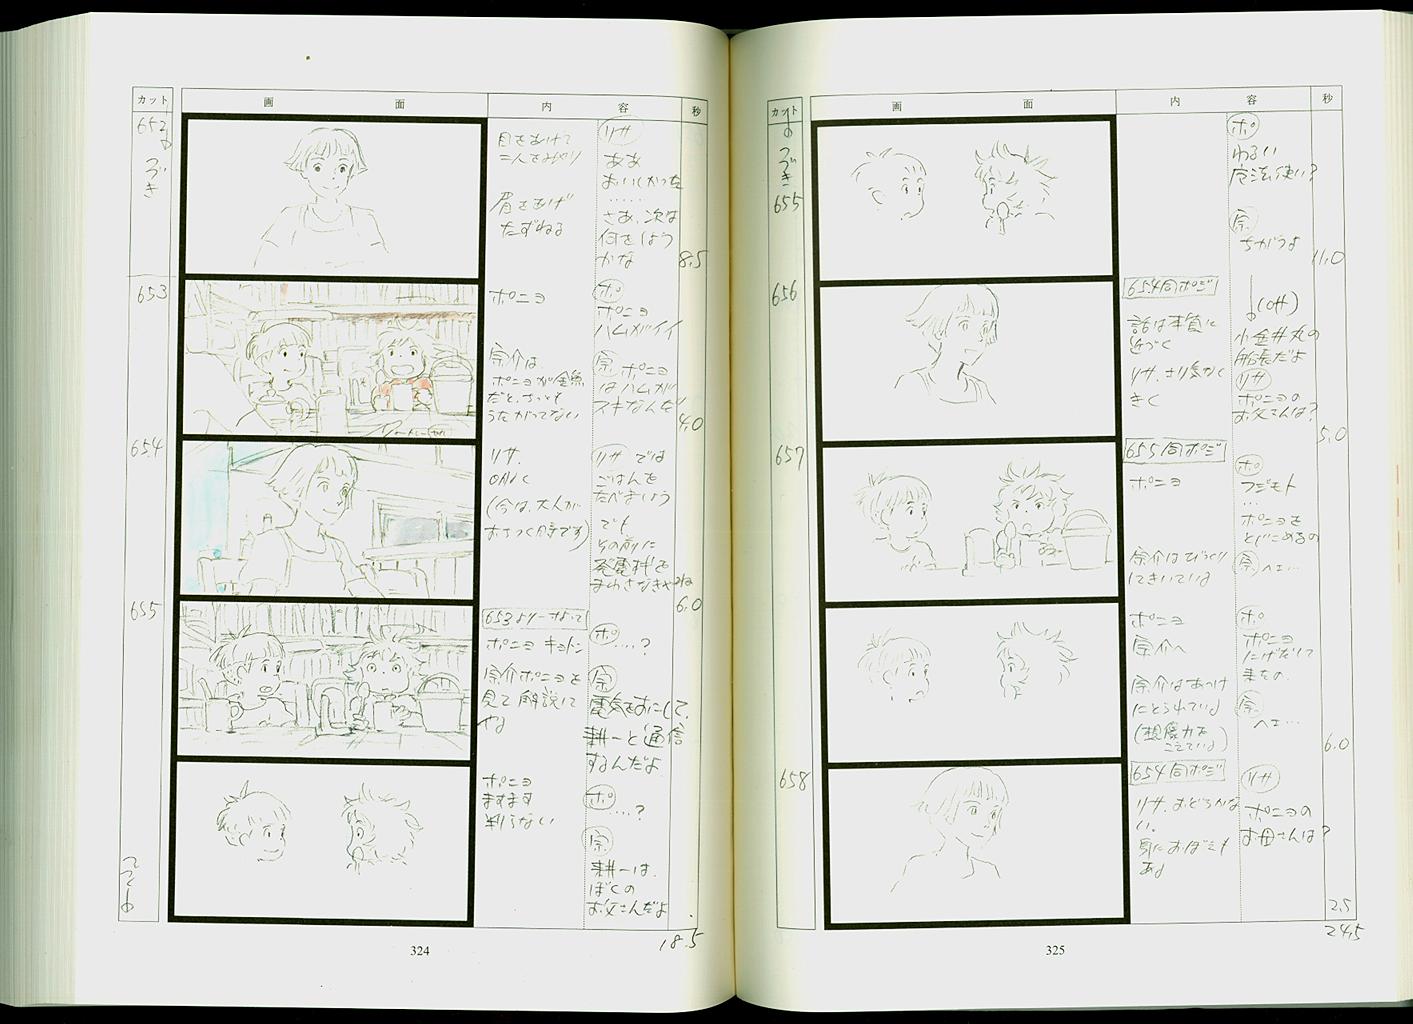 カット
画面
内容
秒
652
つづき
目をあげて
二人をみやり
眉をあげ
たずねる
リサ
ああ
おいしかった
……
さあ、次は
何をしよう
かな
8.5
653
ポニョ
宗介は、
ポニョが金魚
だと、さっぱり
うたがってない
ポ
ポニョ
ハムがイイ
宗 ポニョ
はハムが
スキなんだ
4.0
654
リサ、
(今は、大人が
おちつく時です)
リサ では
ごはんを
たべましょう
でも
その前に
発電機を
まわさなきゃね
6.0
655
ポニョ キョトン
宗介ポニョを
見て解説して
やる
ポ ….?
宗
電気をおこして、
耕一と通信
するんだよ
ポニョ
ますます
判らない
ポ
….?
宗
耕一は、
ぼくの
お父さんだよ
つづく
18.5
324
カット
画面
内容
秒
つづき
655
ポ
わるい
魔法使い?
宗
ちがうよ
11.0
656
654同ポジ
話は本質に
近づく
リサ、さり気なく
きく
(off)
小金井丸の
船長だよ
リサ
ポニョの
お父さんは?
5.0
657
655同ポジ
ポニョ
宗介はびっくり
してきいている
ポ
フジモト
…
ポニョを
とじこめるの
宗 ヘェ…
ポニョ
宗介へ
宗介はあっけ
にとられている
(想像力を
こえている)
ポ
ポニョ
にげだして
来たの
宗
ヘェ…
6.0
658
654同ポジ
リサ、おどろかな
い。
身におぼえも
ある
リサ
ポニョの
お母さんは?
2.5
24.5
325